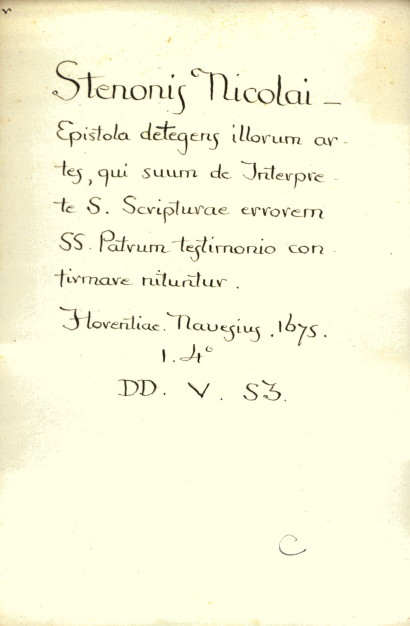 Stenonis Nicolai -
Epistola detegens illorum ar-
tes, qui suum de Interpre-
te S. Scripturae errorem
SS. Patrum testimonio con-
firmare nituntur.
Florentiae. Navesius. 1675.
1. 4°
DD. V. 53.
C